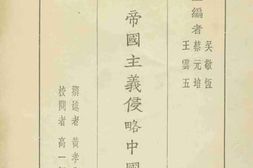 編者
吳敬恆
蔡元培
王雲五
帝國主義侵略中國
述者 黃孝
校閱者 高一